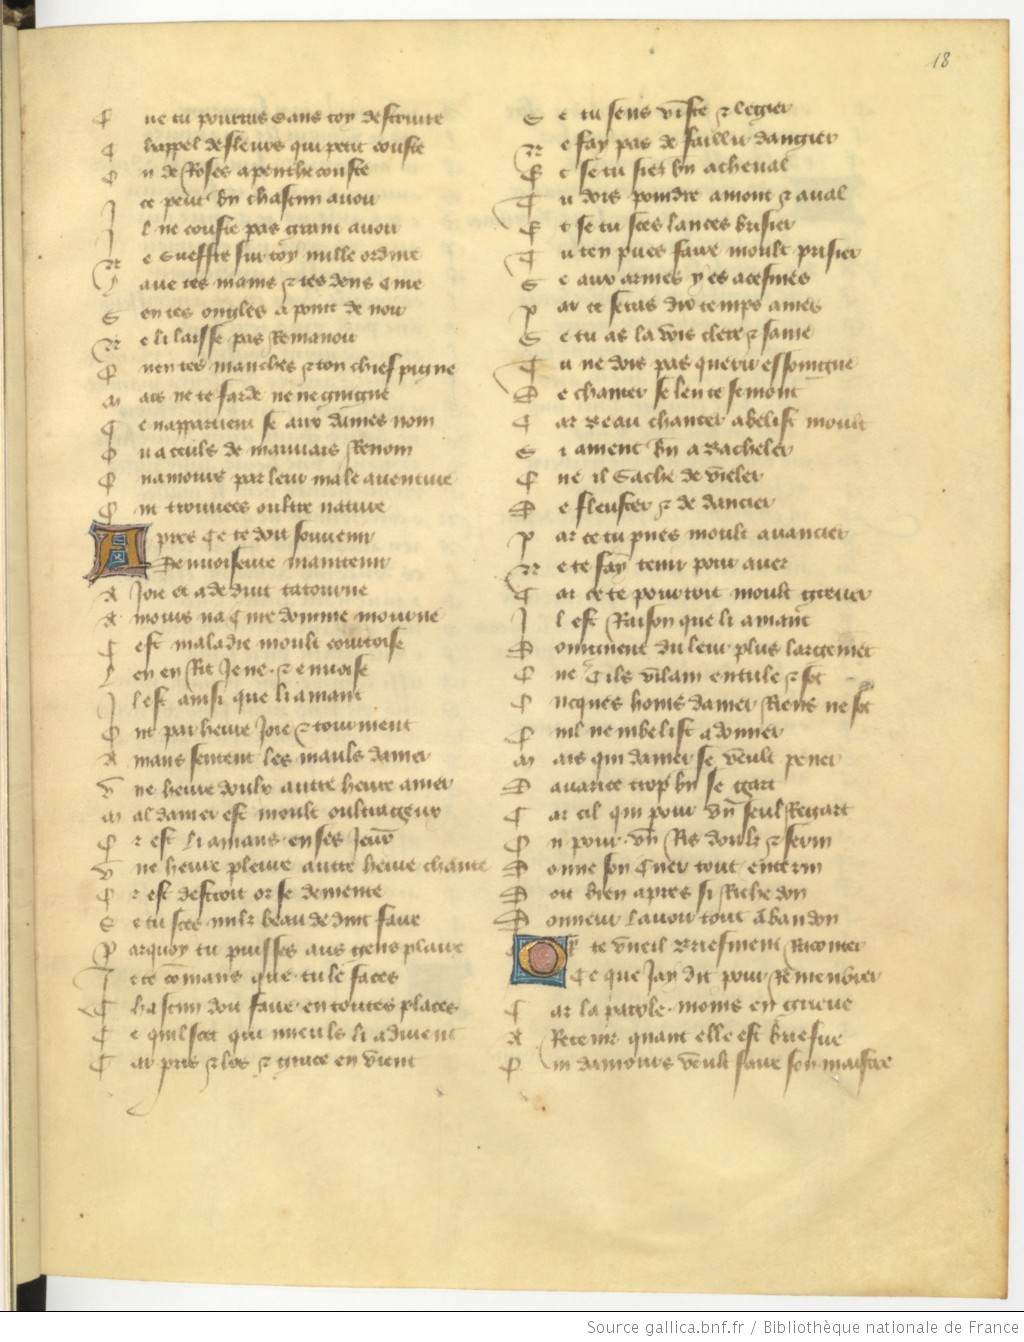 18
Que tu pourras sans toy destruire
Chappel de fleurs qui petit couste
On de Roses a penthecouste
Ice peut bn chascun auoir
Il ne couste pas grant auoir
Ne sueffre sur toy nulle ordure
Laue tes mains et tes dens cure
Sen tes ongles a point de noir
Ne li laisse pas Remanoir
Cten tes manches et ton chief pigne
Mais ne te farde ne ne guigne
Ce nappartient se aux dames non
Ou a ceuls de mauuais Renom
Qui amours par leur male auenture
Ont trouuees oultre nature
Apres Ce te doit souuenir
De nuoiseure maintenir
A Joie et a deduit tatourne
Amours na Cure domme mourne
Cest maladie moult courtoise
Len en Rit Jene et enuoise
Il est ainsi que li amant
Ont par heure Joie et tourment
Amans sentent les mauls damer
Vne heure doulx autre heure amer
Mal damer est moult oultrageux
Or est li amans en ses Jeux
Vne heure pleure autre heure chante
Or est destroit or se demente
Se tu sces nulz beau deduit faire
Par quoy tu puisses aus gens plaire
Je te comans que tu le faces
Chascun doit faire en toutes places
Ce quil scet qui mieuls li aduient
Car pris et los et grace en vient
Se tu sens viste et legier
Ne fay pas de saillir dangier
Et se tu sies bn a cheual
Tu dois poindre amont et aual
Et se tu sces lances brisier
Tu ten pues faire moult prisier
Se aux armes y es acesmes
Par ce seras dix temps ames
Se tu as la vois clere et saine
Tu ne dois pas querir essoingne
De chanter se len te semont
Car Beau chanter abelist moult
Si auient bn a Bacheler
Que il Sache de vieler
De fleuster et de dancier
Par ce tu pues moult auancier
Ne te fay tenir pour auer
Car ce te pourroit moult greuer
Il est Raison que li amant
Donnent du leur plus largement
Que Cils vilain entule et sot
Oncques homs damer Riens ne sot
Cui il nembelist a donner
Mais qui damer se veult pener
Dauarice trop bn se gart
Car cil qui pour vn seul Regart
On pour vn Ris doulz et serin
Donne son Cuer tout enterin
Doit bien apres si Riche don
Donneur lauoir tout abandon
Or te vueil Briefment Racomer
Ce que Jay dit pour Remenbrer
Car la parole moins engrieue
A Retenir quant elle est briefue
Qui damours veult faire son maistre